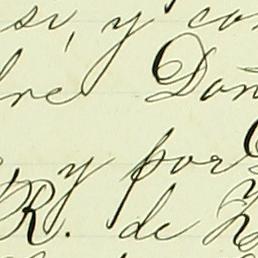 si, y con
dre Don
y por
R. de